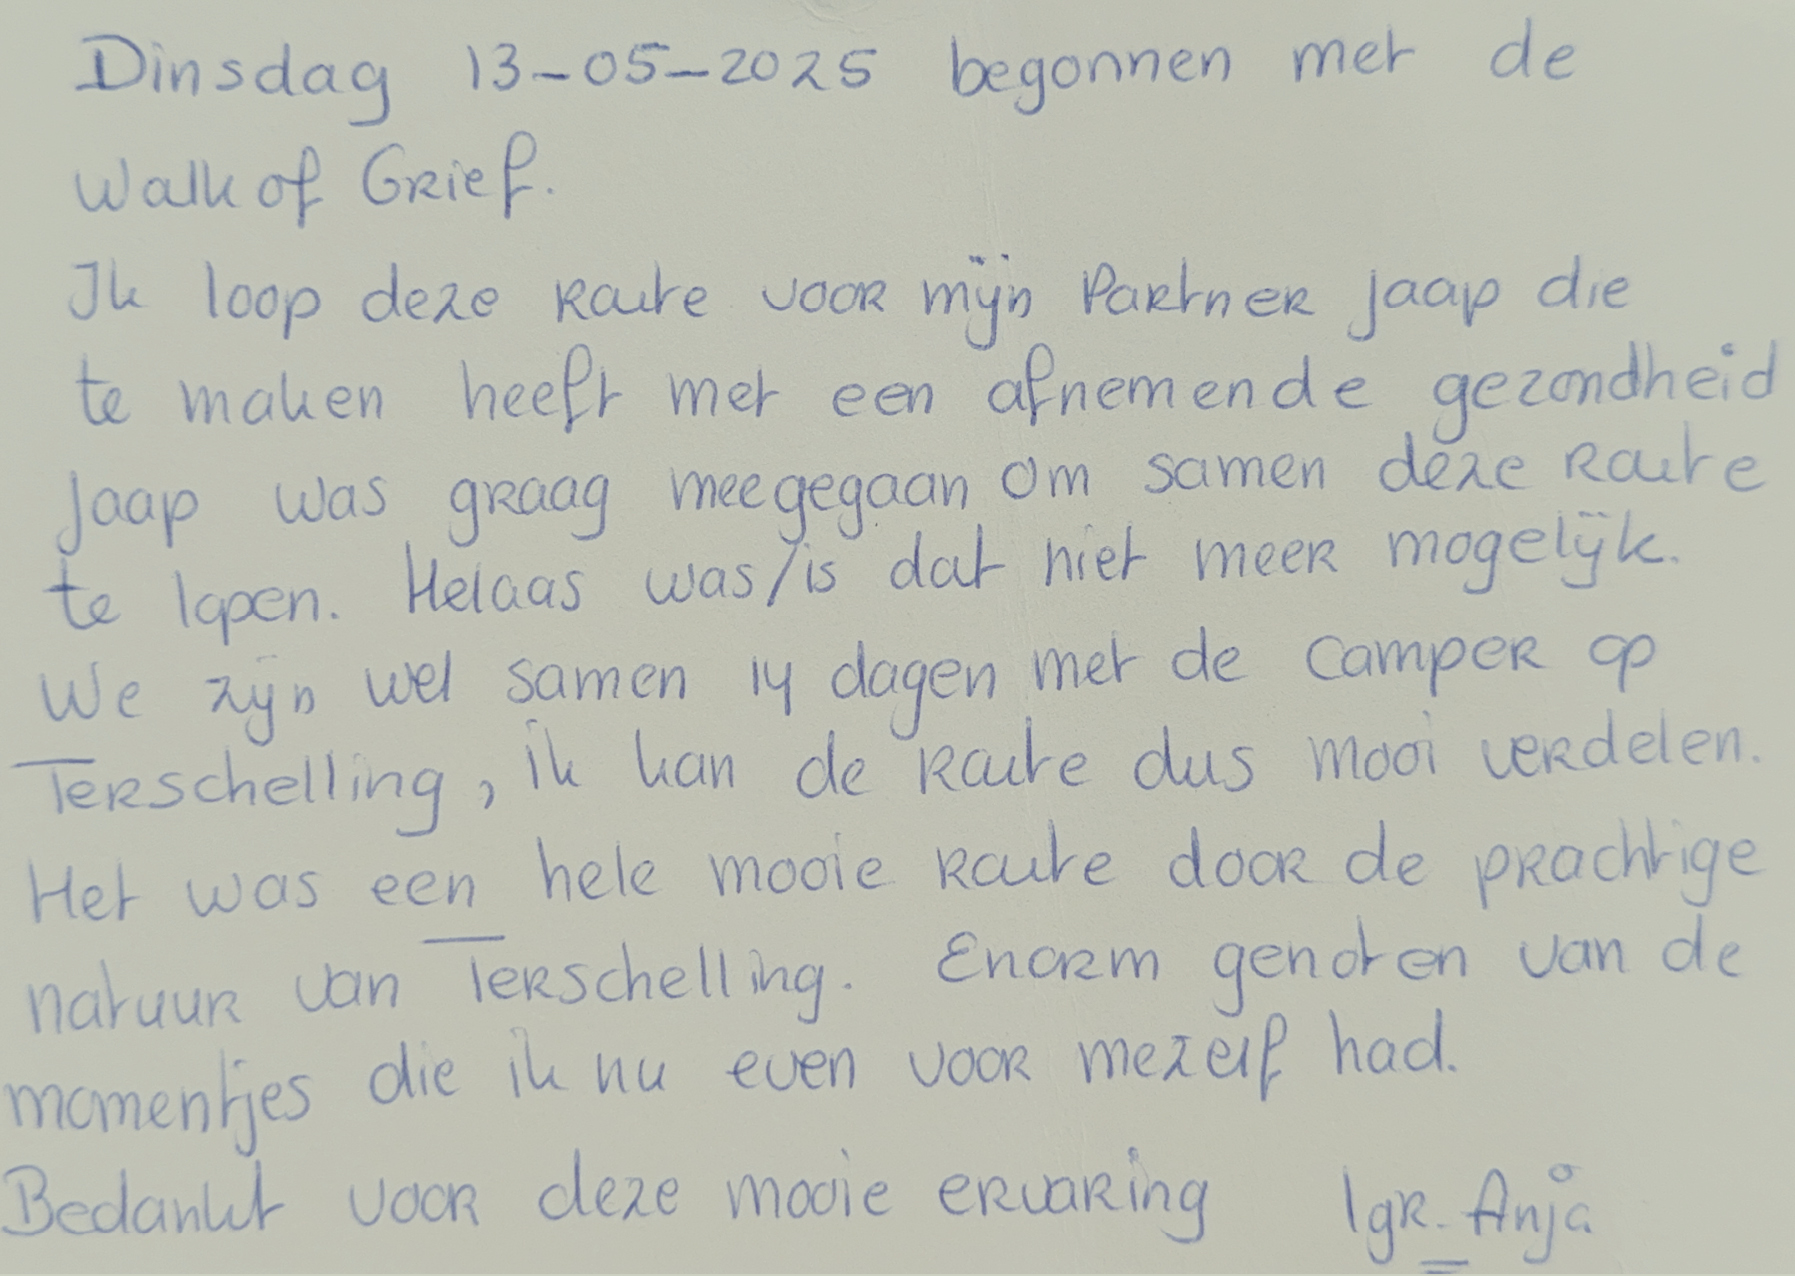 Dinsdag 13-05-2025 begonnen met de
Walk of Grief.
Ik loop deze Route voor mijn Partner Jaap die
te maken heeft met een afnemende gezondheid
Jaap was graag meegegaan om samen deze Route
te lopen. Helaas was/is dat niet meer mogelijk.
We zijn wel samen 14 dagen met de Camper op
Terschelling, ik kan de Route dus mooi verdelen.
Het was een hele mooie Route door de prachtige
natuur van Terschelling. Enorm genoten van de
momentjes die ik nu even voor mezelf had.
Bedankt voor deze mooie ervaring lgr. Anja